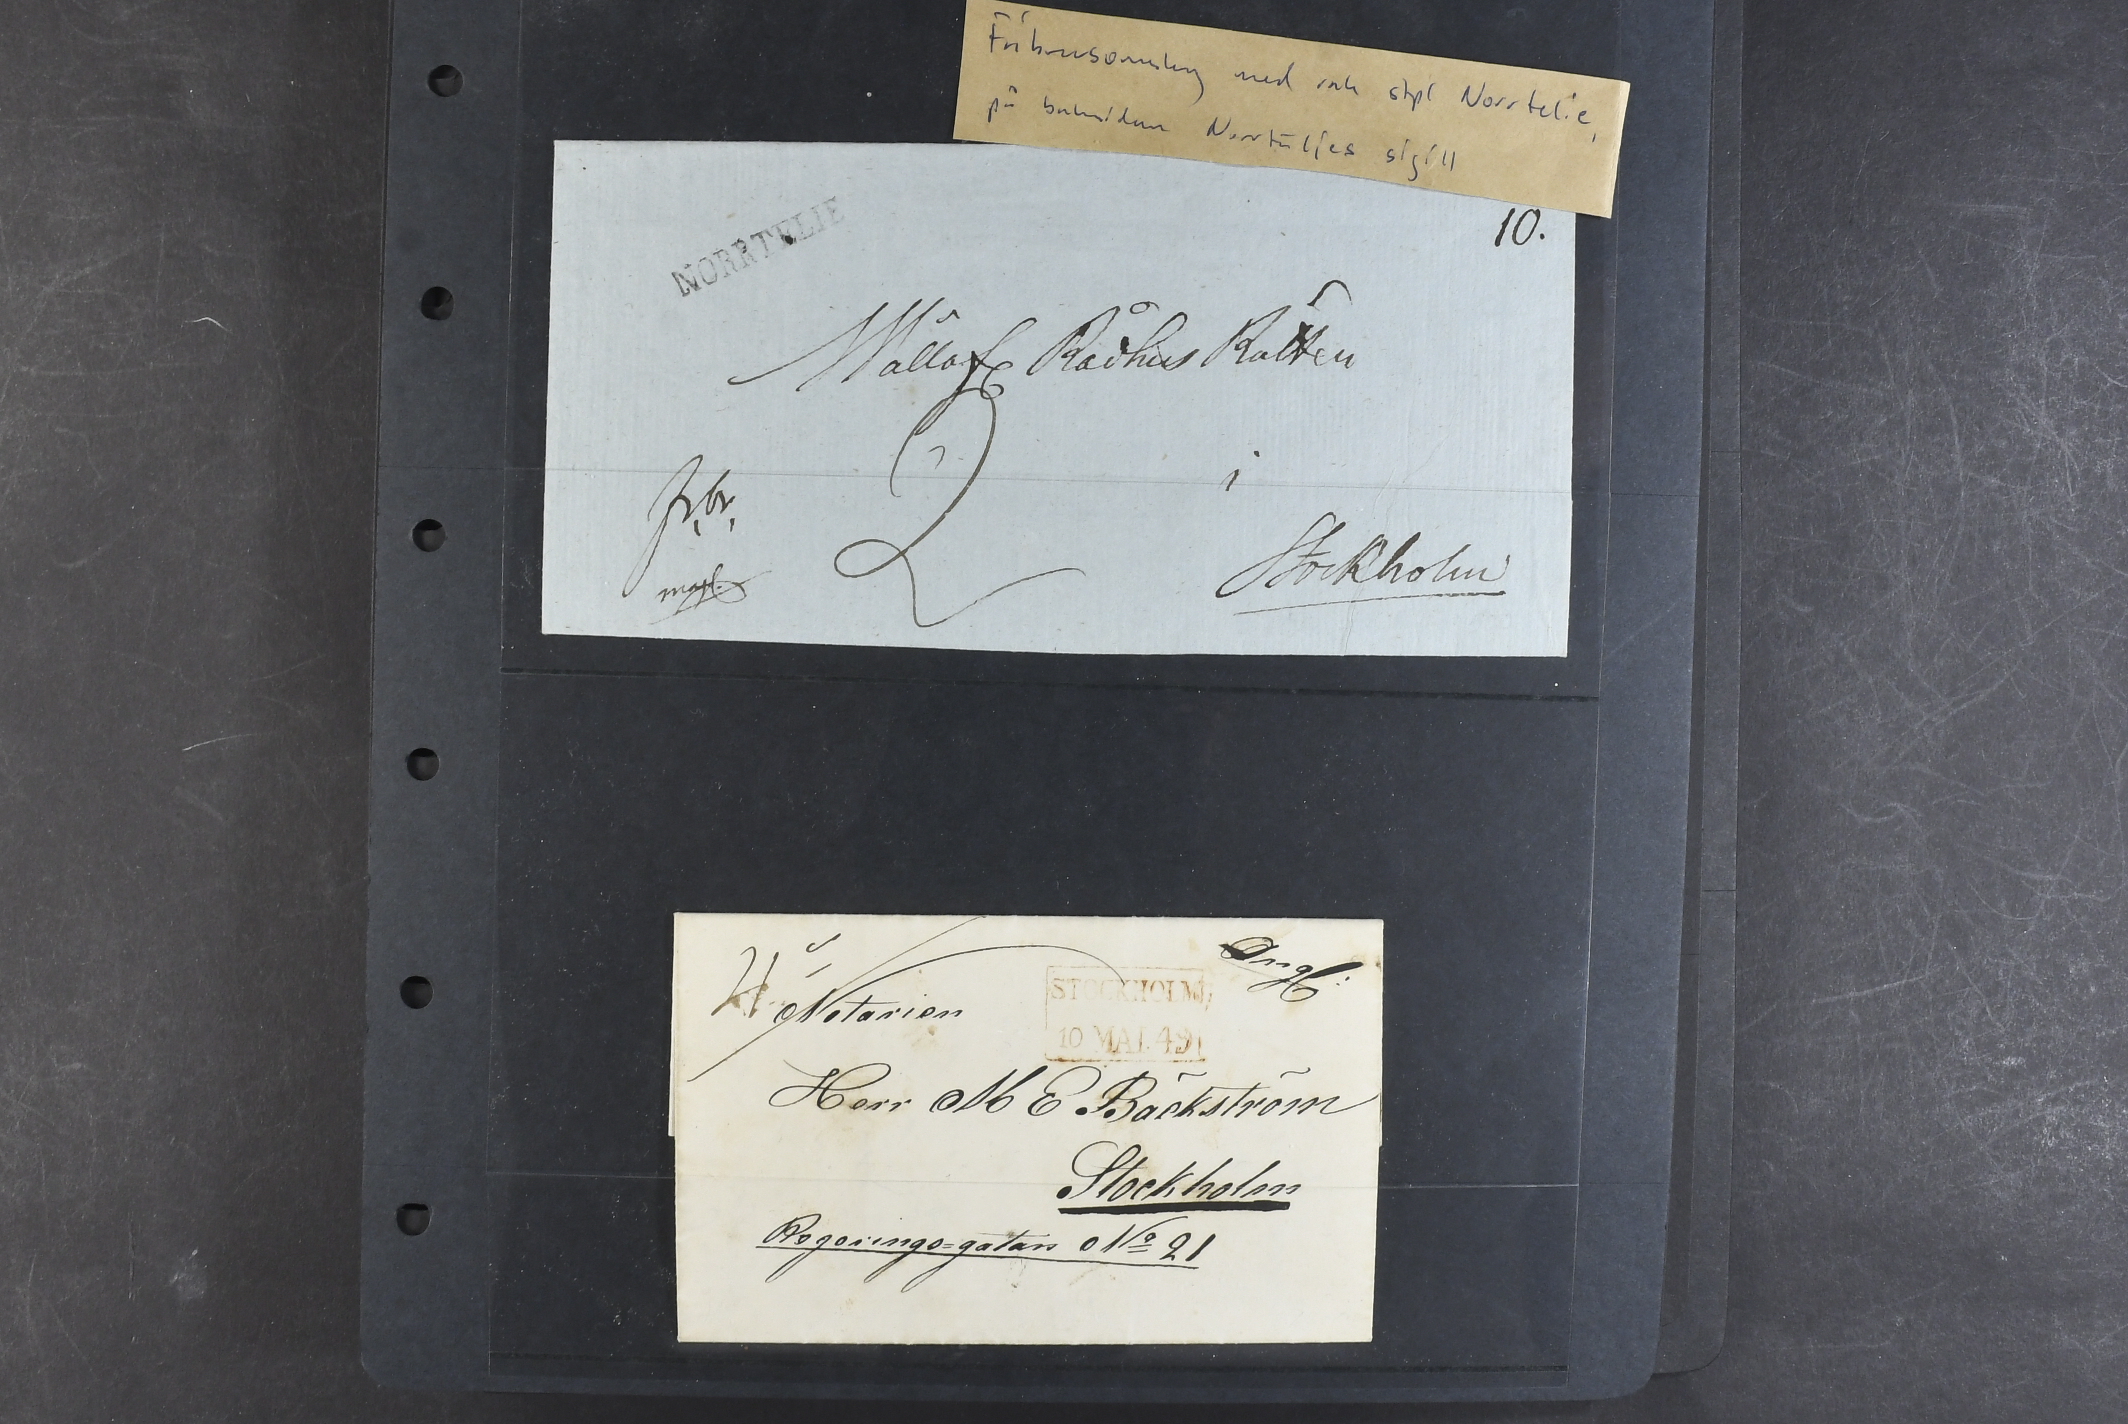 Fribrevsomslag med rak stpl Norrtelie,
på baksidan Norrtäljes sigill
NORRTELIE
10.
Rådhus Rätten
2
i
Fr,br,
Stockholm
Notarien
STOCKHOLM
10 MAJ. 49
Herr M E Bäckström
Stockholm
Regerings=gatan No 21